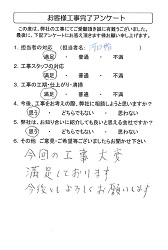 お客様工事完了アンケート
この度は、弊社の工事にてご愛顧頂き誠に有難うございました。
最後に、下記アンケートにお答え頂きますようお願い申し上げます。
1. 担当者の対応 (担当者名: )
満足 ・ 普通 ・ 不満
2. 工事スタッフの対応
満足 ・ 普通 ・ 不満
3. 工事の工期・仕上がり・清掃
満足 ・ 普通 ・ 不満
4. 今後、工事をお考えの際、弊社に相談しようと思いますか?
思う ・ どちらでもない ・ 思わない
5. 弊社は、お知り合いに紹介しても良いと思える会社ですか?
思う ・ どちらでもない ・ 思わない
6. その他 ご意見・ご希望等ございましたらお聞かせ下さい
今回の工事大変
満足しております
今後ともよろしくお願いします